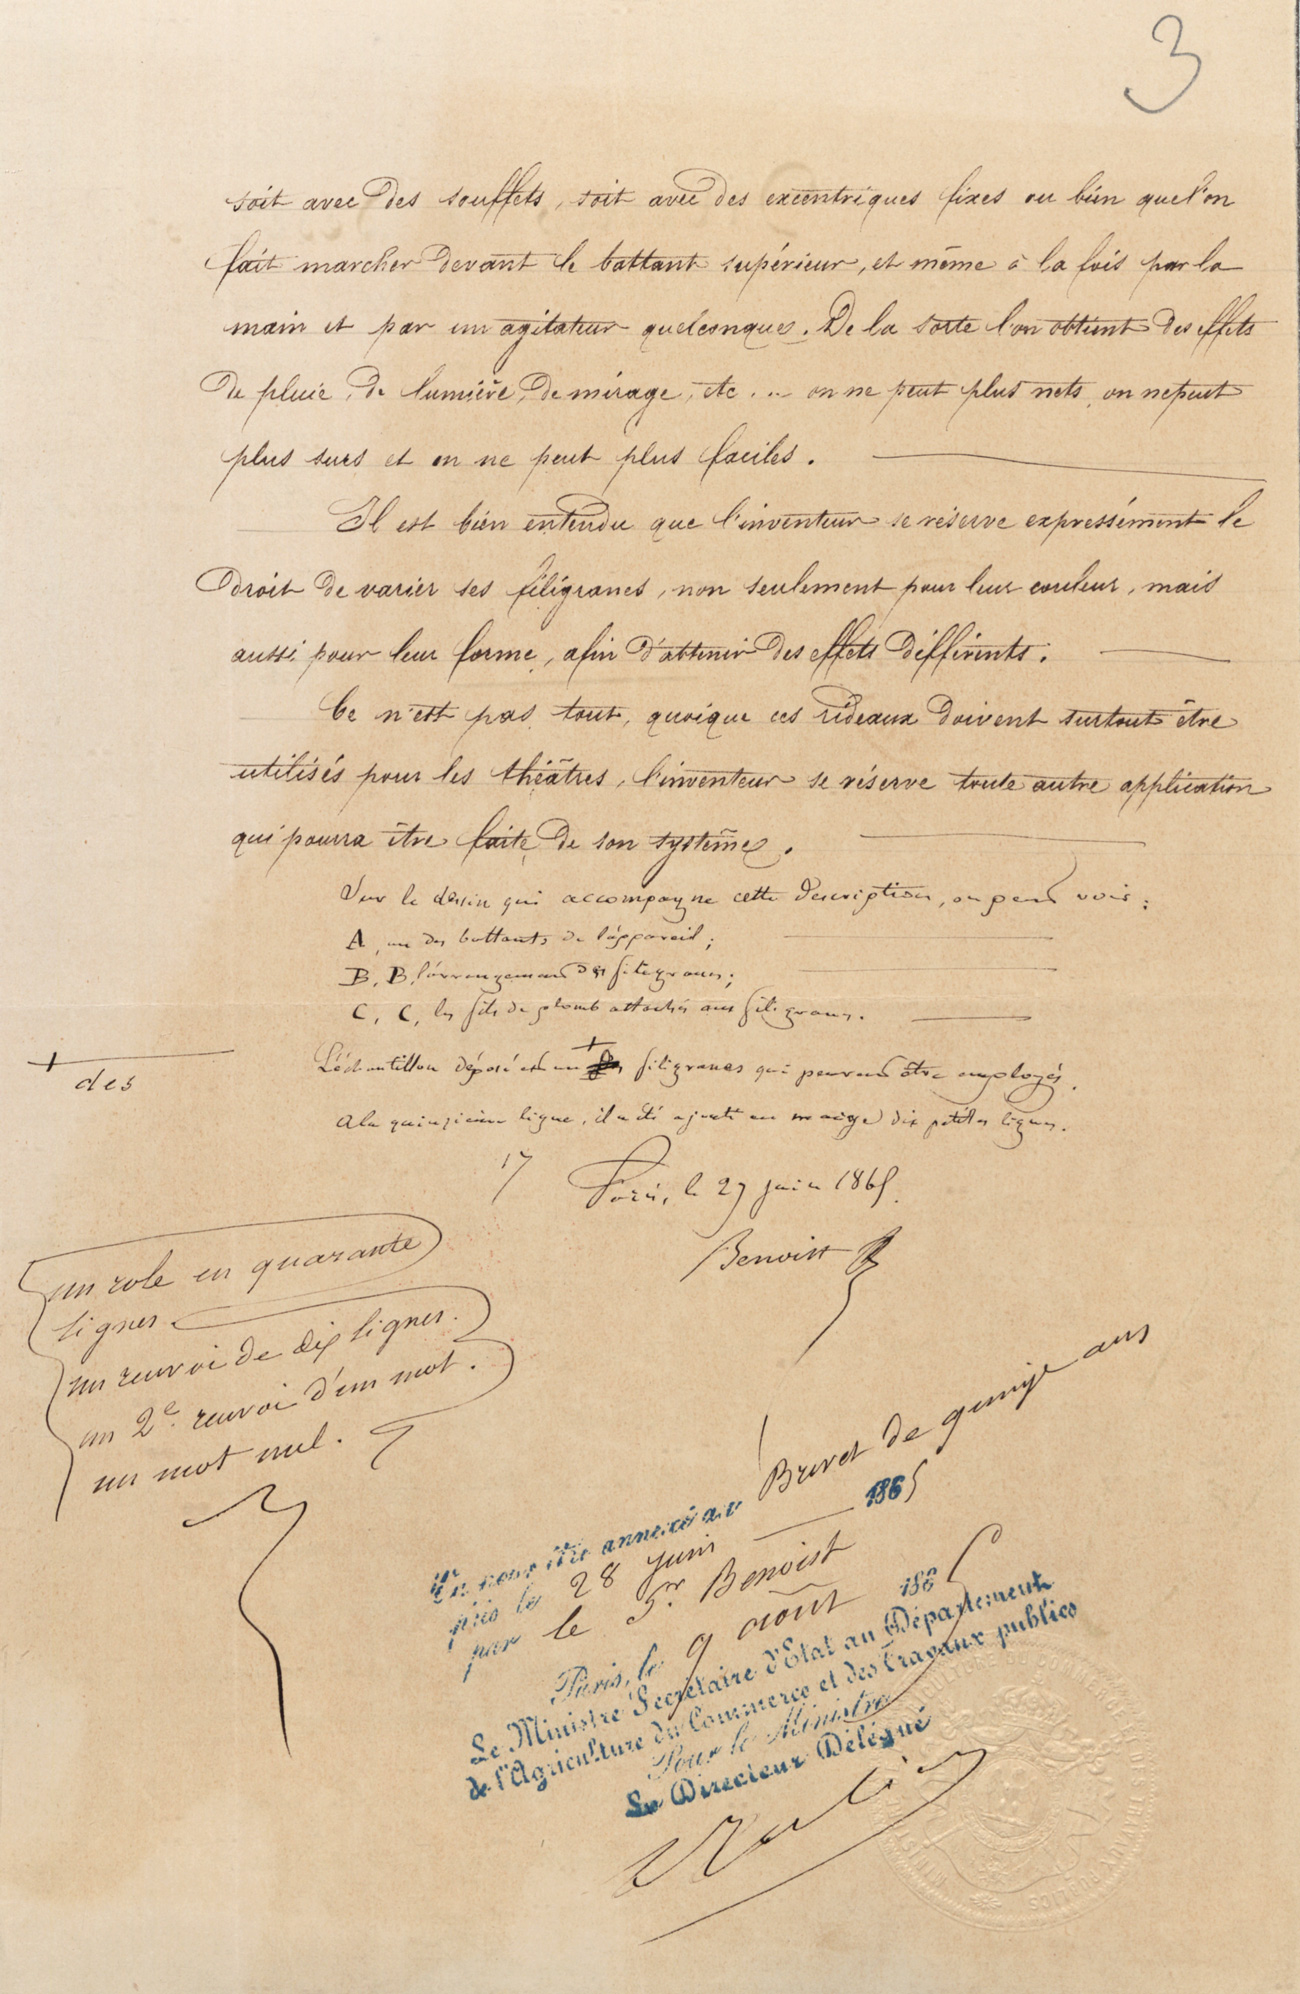 3
soit avec des soufflets, soit avec des excentriques fixes ou bien que l'on
fait marcher devant le battant supérieur, et même à la fois par la
main et par un agitateur quelconque. De la sorte l'on obtient des effets
de pluie, de lumière, de mirage, etc ... on ne peut plus nets, on ne peut
plus surs et on ne peut plus faciles.
Il est bien entendu que l'inventeur se réserve expressément le
droit de varier ses filigranes, non seulement pour leur couleur, mais
aussi pour leur forme, afin d'obtenir des effets différents.
Ce n'est pas tout, quoique ces rideaux doivent surtout être
utilisés pour les théâtres, l'inventeur se réserve toute autre application
qui pourra être faite de son système.
Sur le dessin qui accompagne cette description, on peut voir :
A, un des battants de l'appareil ;
B, B, l'arrangement des filigranes ;
C, C, les fils de plomb attachés aux filigranes.
+
des
L'échantillon déposé est un + filigranes qui peuvent être employés.
A la quinzième ligne, il a été ajouté en marge dix petites lignes.
17
Paris, le 27 juin 1865.
Benoist
un role en quarante
lignes.
un renvoi de dix lignes.
un 2e. renvoi d'un mot.
un mot nul.
Vu pour être annexé au Brevet de quinze ans
pris le 28 juin 1865
par le Sr. Benoist
Paris, le 9 août 1865
Le Ministre Secrétaire d'Etat au Département
de l'Agriculture du Commerce et des Travaux publics
Pour le Ministre
Le Directeur Délégué